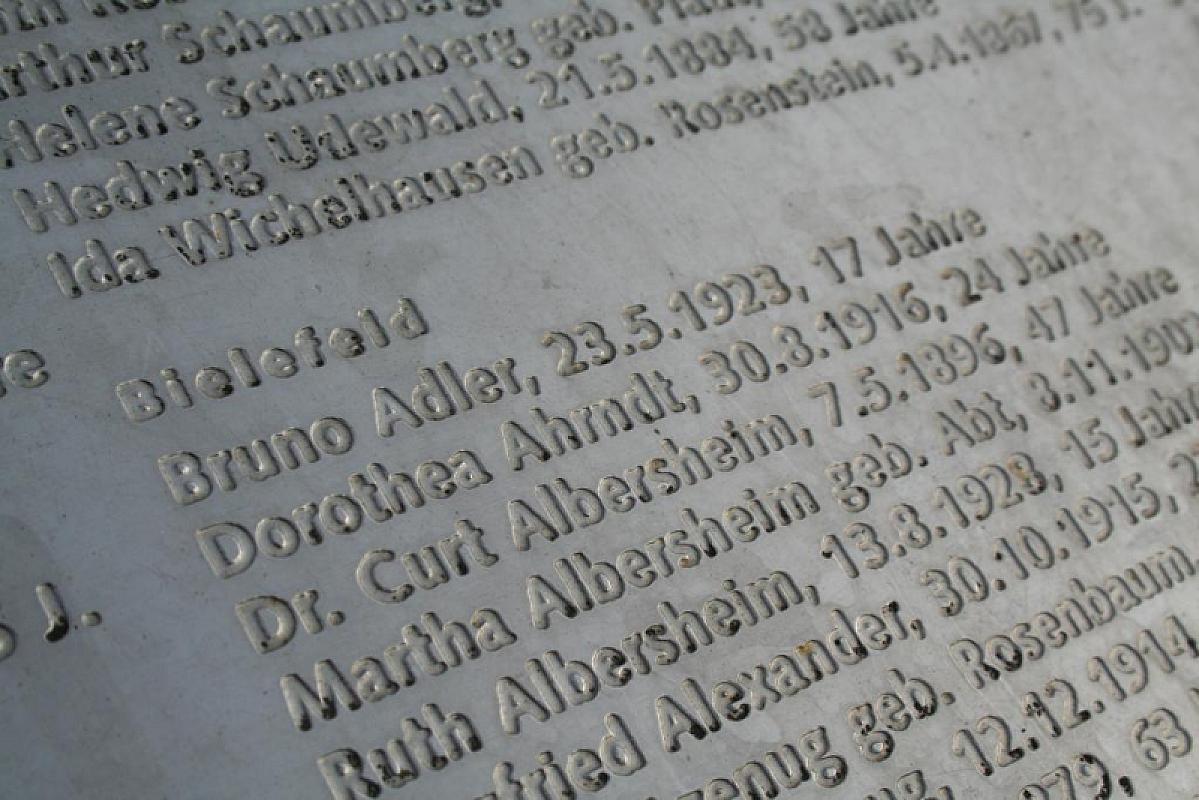 Arthur Schaumberg,
Helene Schaumberg geb.
Hedwig Udewald, 21.5.1884, 53 Jahre
Ida Wichelhausen geb. Rosenstein, 5.4.1867, 75 J.
Bielefeld
Bruno Adler, 23.5.1923, 17 Jahre
Dorothea Ahrndt, 30.8.1916, 24 Jahre
Dr. Curt Albersheim, 7.5.1896, 47 Jahre
Martha Albersheim geb. Abt, 3.11.190
J.
Ruth Albersheim, 13.8.1928, 15 Jahre
fried Alexander, 30.10.1915, 2
zenug geb. Rosenbaum,
12.12.1914,
879, 63